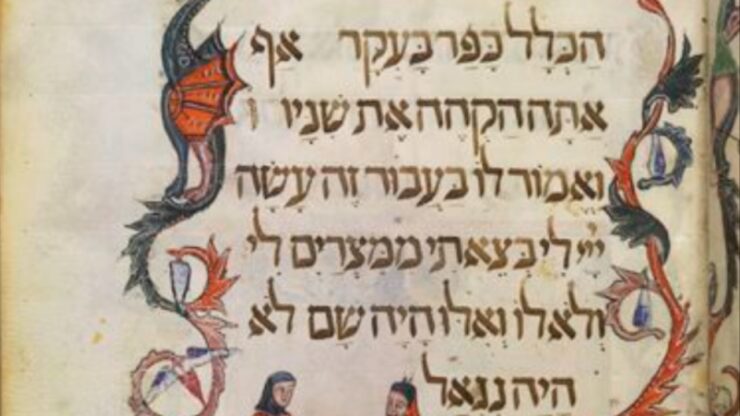 הכלל כפר בעקר אף
אתה הקהה את שניו ו
ואמור לו בעבור זה עשה
ייי לי בצאתי ממצרים לי
ולא לו ואלו היה שם לא
היה נגאל